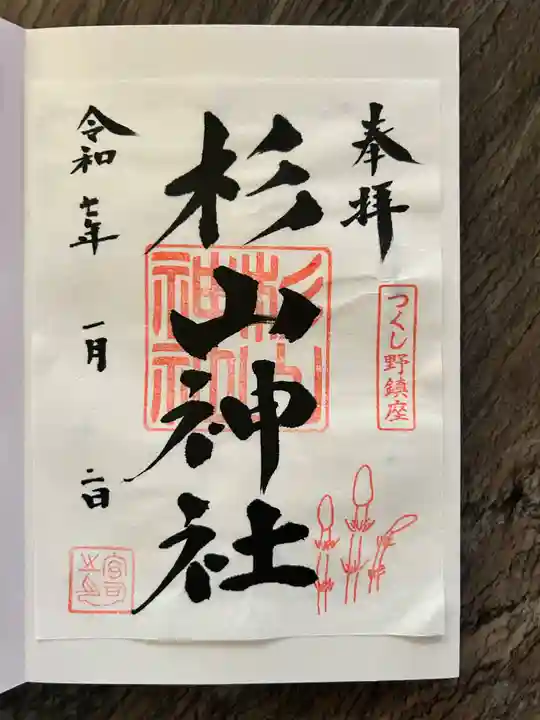 奉拝
つくし野鎮座
杉山神社
杉山神社
令和七年 一月 二日
宮司之印